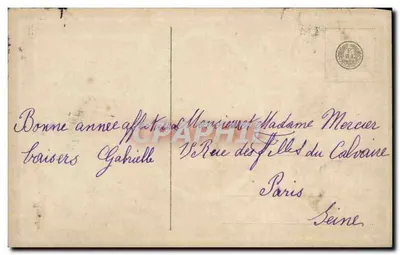 Bonne année aff
baisers Gabrielle
Monsieur et Madame Mercier
Rue des Filles du Calvaire
Paris
Seine